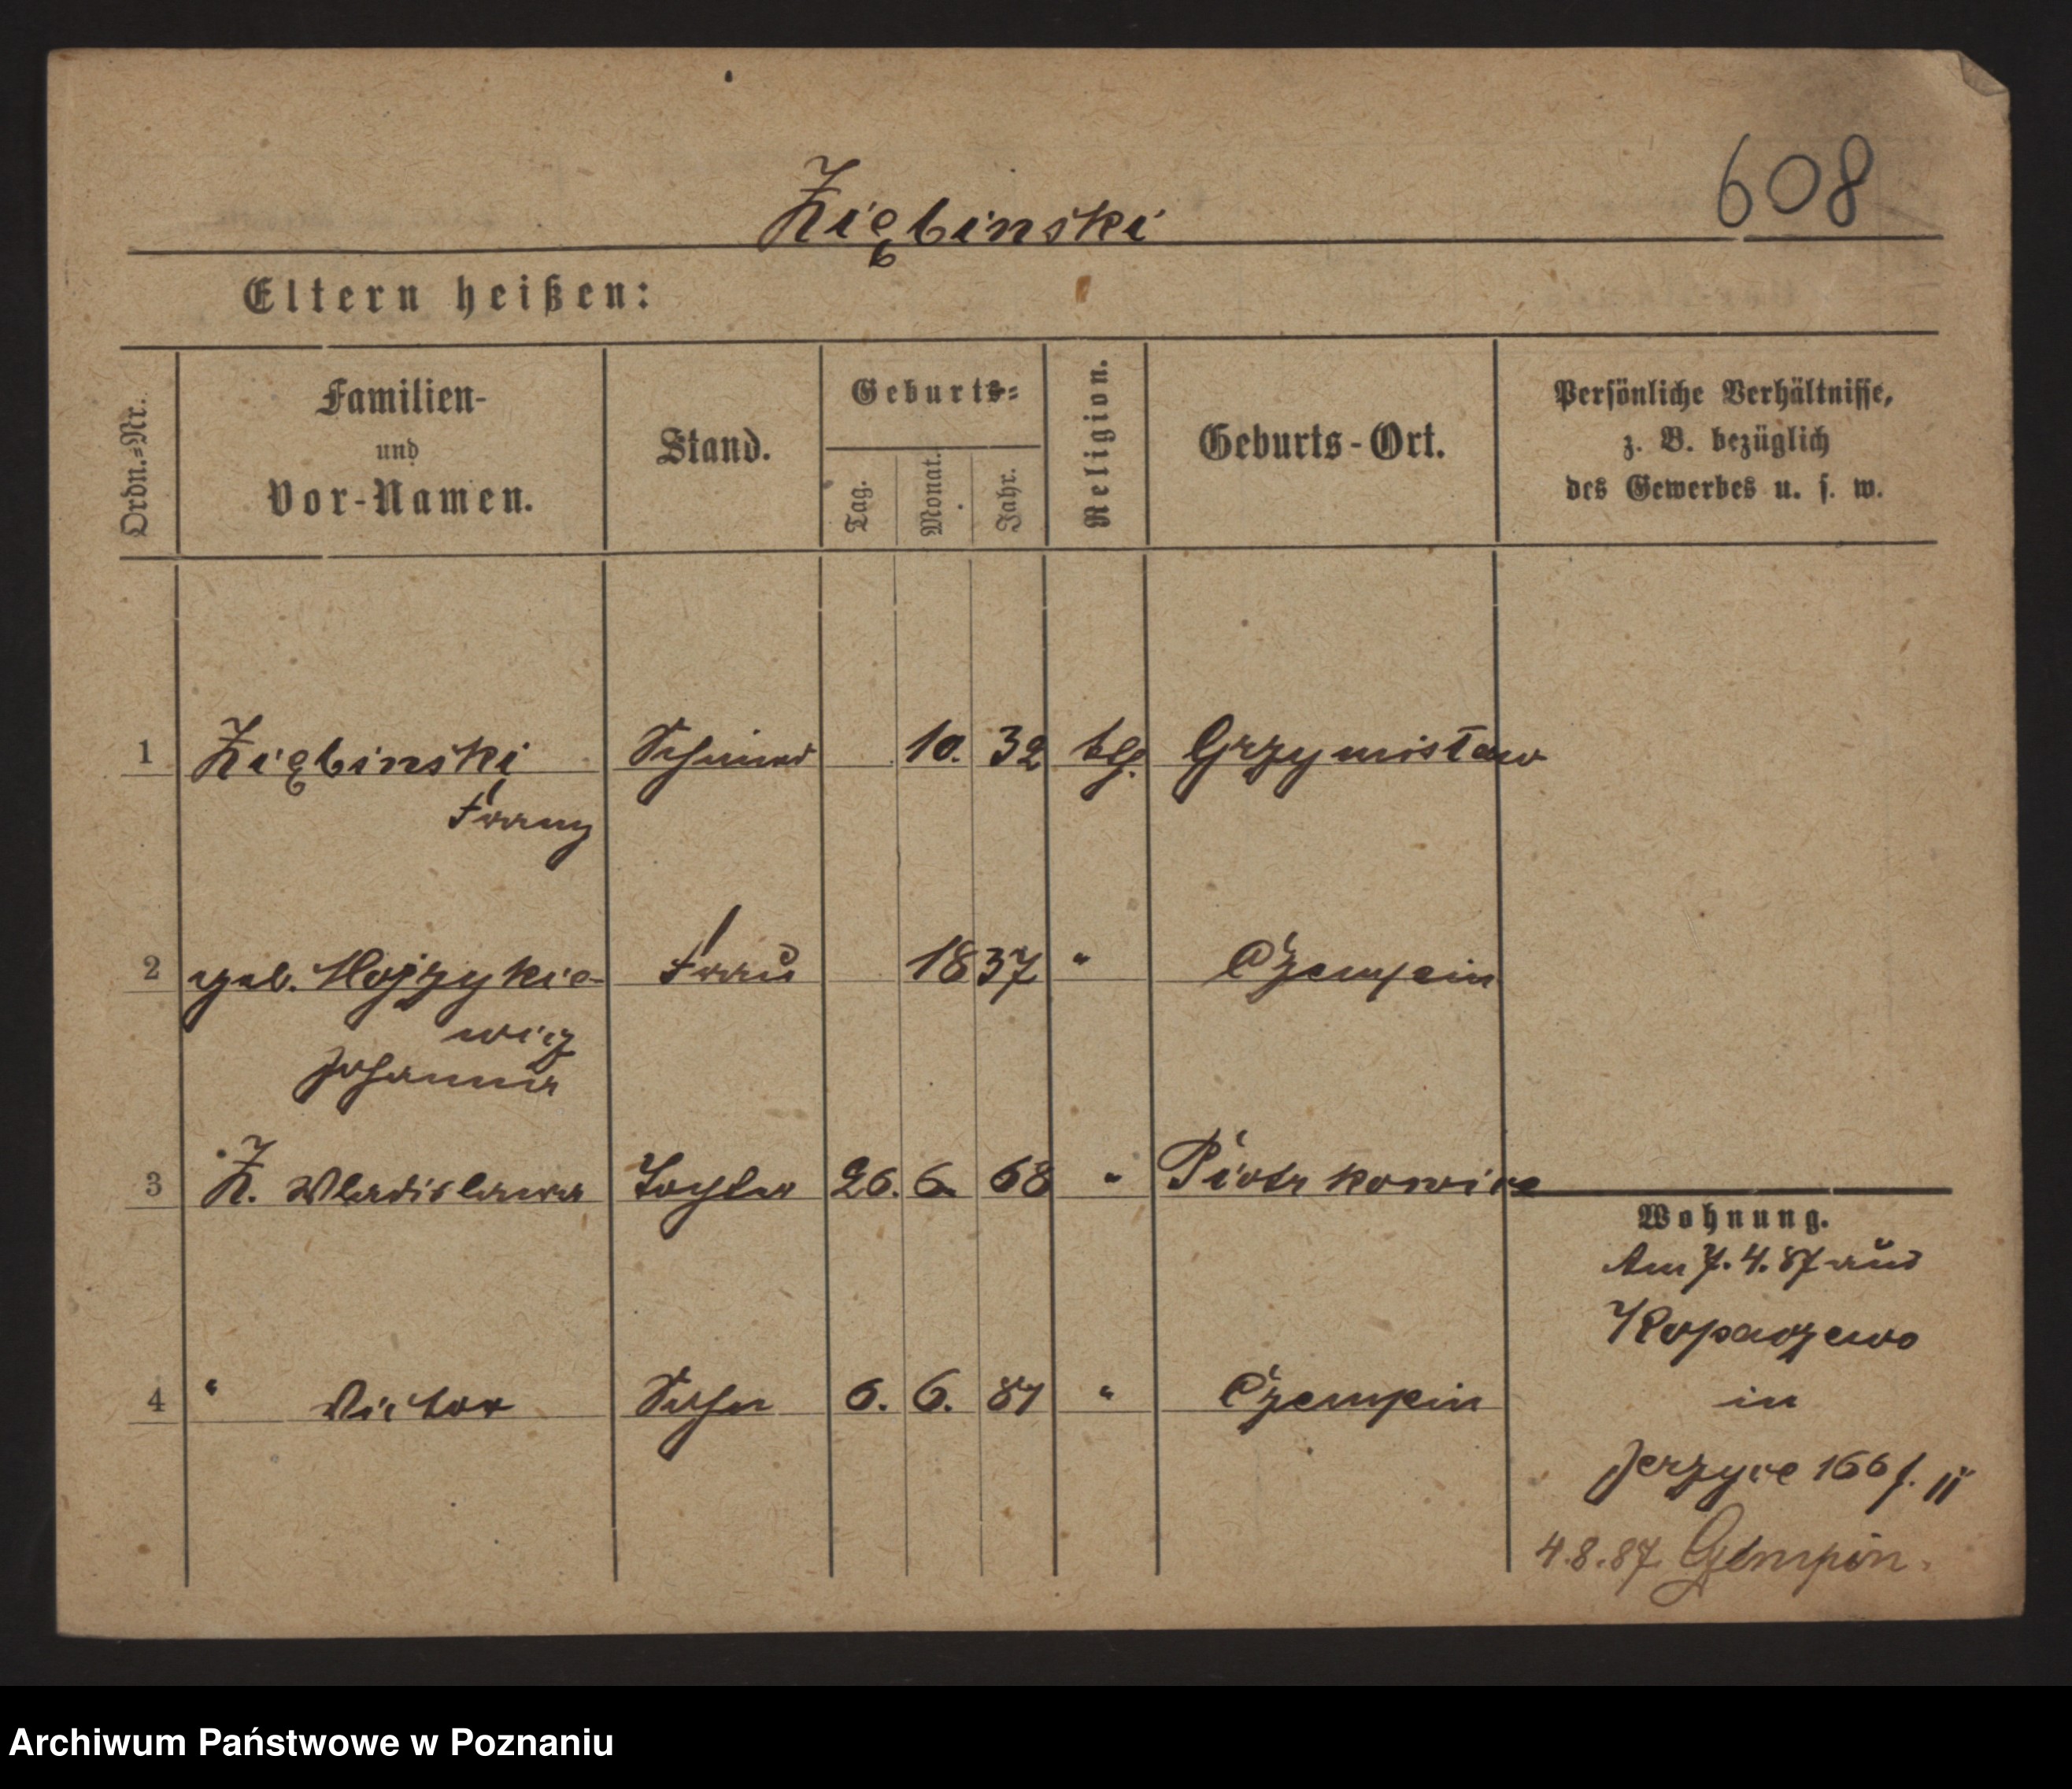 608
Ziębinski
Eltern heißen:
Ordn.-Nr.
Familien-
und
Vor-Namen.
Stand.
Geburts-
Tag.
Monat.
Jahr.
Religion.
Geburts-Ort.
Persönliche Verhältnisse,
z. B. bezüglich
des Gewerbes u. s. w.
1 Ziębinski Schmied 10. 32 kth. Grzymisław
Franz
2 geb. Mojzykie- Frau 1837 " Czempin
wicz
Johanna
3 Z. Wladislawa Tochter 26. 6. 68 " Piotrkowice
4 " Victor Sohn 6. 6. 81 " Czempin
Wohnung.
Am 7. 4. 87 aus
Kopaczewo
in
Jerzyce 166 f. II
4.8.87. Czempin.
Archiwum Państwowe w Poznaniu